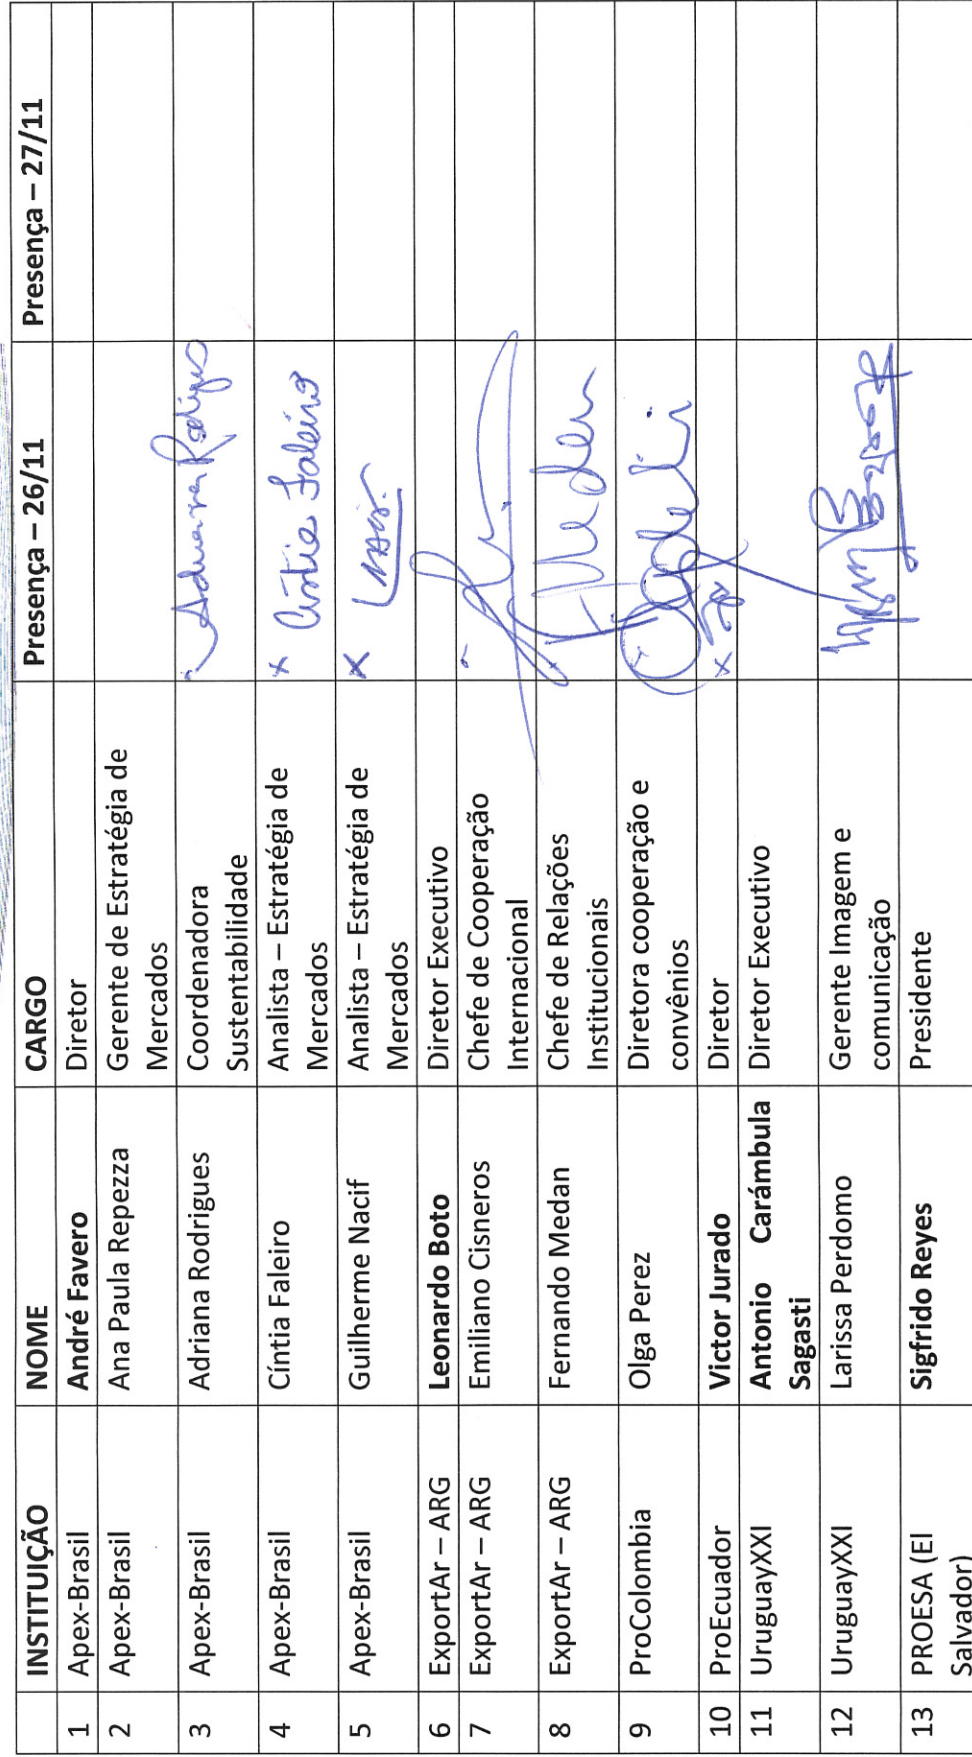 INSTITUIÇÃO NOME CARGO Presença – 26/11 Presença – 27/11
1 Apex-Brasil André Favero Diretor
2 Apex-Brasil Ana Paula Repezza Gerente de Estratégia de
Mercados
3 Apex-Brasil Adriana Rodrigues Coordenadora Adriana Rodrigues
Sustentabilidade
4 Apex-Brasil Cíntia Faleiro Analista – Estratégia de x Cíntia Faleiro
Mercados
5 Apex-Brasil Guilherme Nacif Analista – Estratégia de x
Mercados
6 ExportAr – ARG Leonardo Boto Diretor Executivo
7 ExportAr – ARG Emiliano Cisneros Chefe de Cooperação
Internacional
8 ExportAr – ARG Fernando Medan Chefe de Relações Medan
Institucionais
9 ProColombia Olga Perez Diretora cooperação e
convênios
10 ProEcuador Victor Jurado Diretor x
11 UruguayXXI Antonio Carámbula Diretor Executivo
Sagasti
12 UruguayXXI Larissa Perdomo Gerente Imagem e
comunicação
13 PROESA (El Sigfrido Reyes Presidente
Salvador)